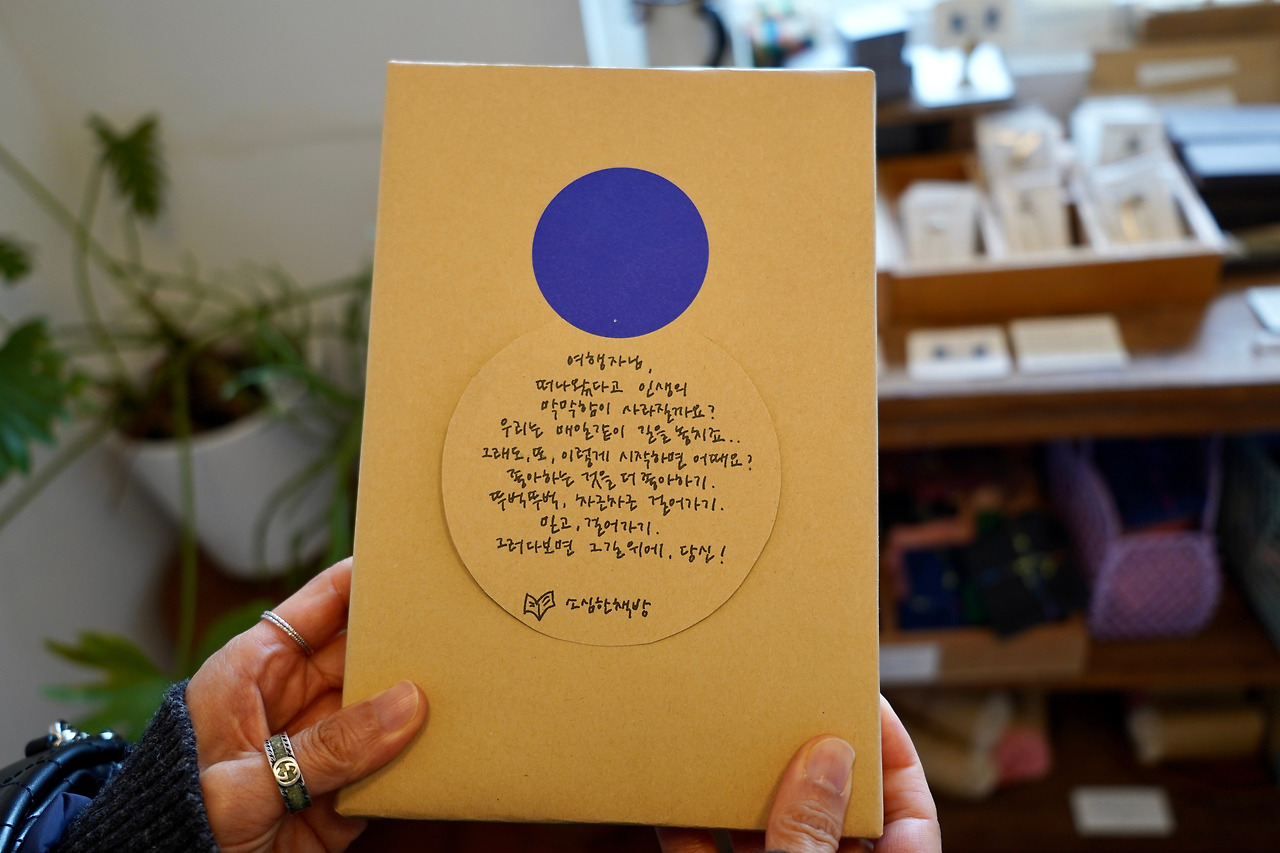 여행자님,
떠나왔다고 인생의
막막함이 사라질까요?
우리는 매일같이 길을 놓치죠..
그래도, 또, 이렇게 시작하면 어때요?
좋아하는 것을 더 좋아하기.
뚜벅뚜벅, 차근차근 걸어가기.
믿고, 걸어가기.
그러다보면 그길위에, 당신!
소심한책방